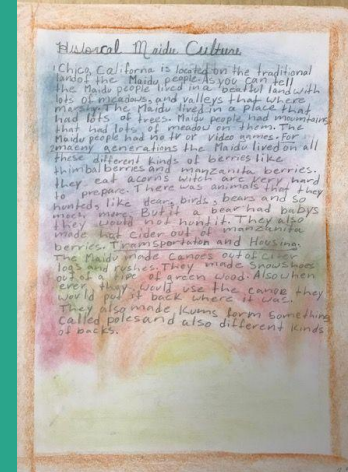 Historcal Maidu Culture
Chico, California is located on the traditional
land of the Maidu people. As you can tell
the Maidu people lived in a beatful land with
lots of meadows, and valleys that where
marsiy. The Maidu lived in a place that
had lots of trees. Maidu people had mountains
that had lots of meadow on them. The
Maidu people had no tr or video games. For
maeny generations the Maidu lived on all
these different kinds of berries like
thimbal berries and manzanita berries.
they eat acorns witch are very hard
to prepare. There was animals that they
hunted, like dear, birds, bears and so
much more. But if a bear had babys
they would not hunt it. They also
made hot cider out of manzanita
berries. Tramsportaion and Housing.
The Maidu made canoes out of
logs and rushes. They made snowshoes
out of a of green wood. Also when
ever they would use the canoe they
would put it back where it was.
They also made Kums form something
called poles and also different kinds
of backs.